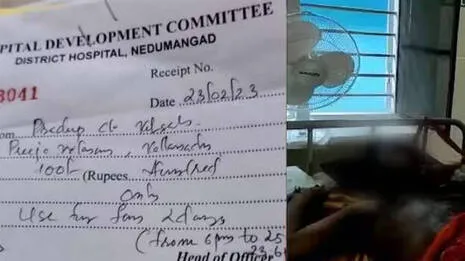 PITAL DEVELOPMENT COMMITTEE
DISTRICT HOSPITAL, NEDUMANGAD
Receipt No.
3041
Date 23/02/23
om
100/- (Rupees Hundred
Only
Use for fan 2 days
(from 6pm to 25
Head of Office